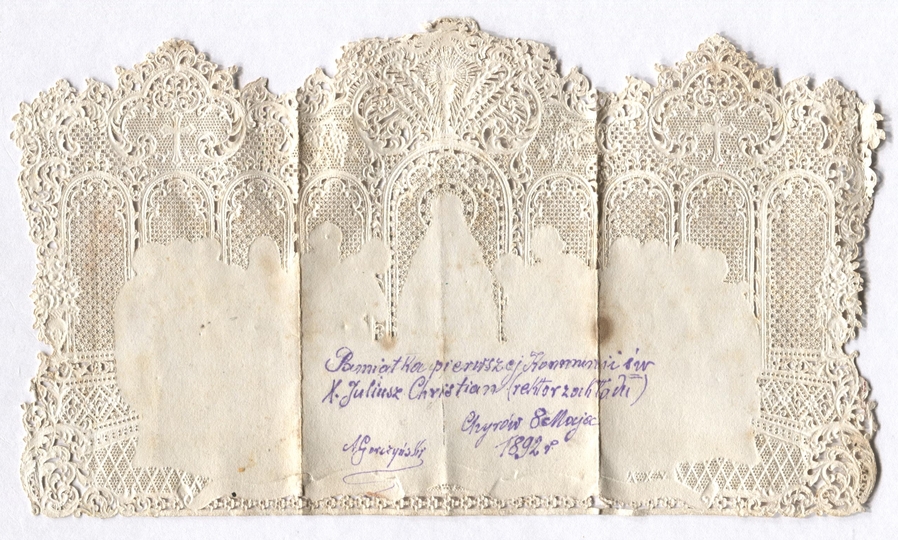 Pamiatka pierwszej Kommunii św
X. Juliusz Christian (rektor zakładu)
Chyrów 8 Maja
1892 r
AGorczyński